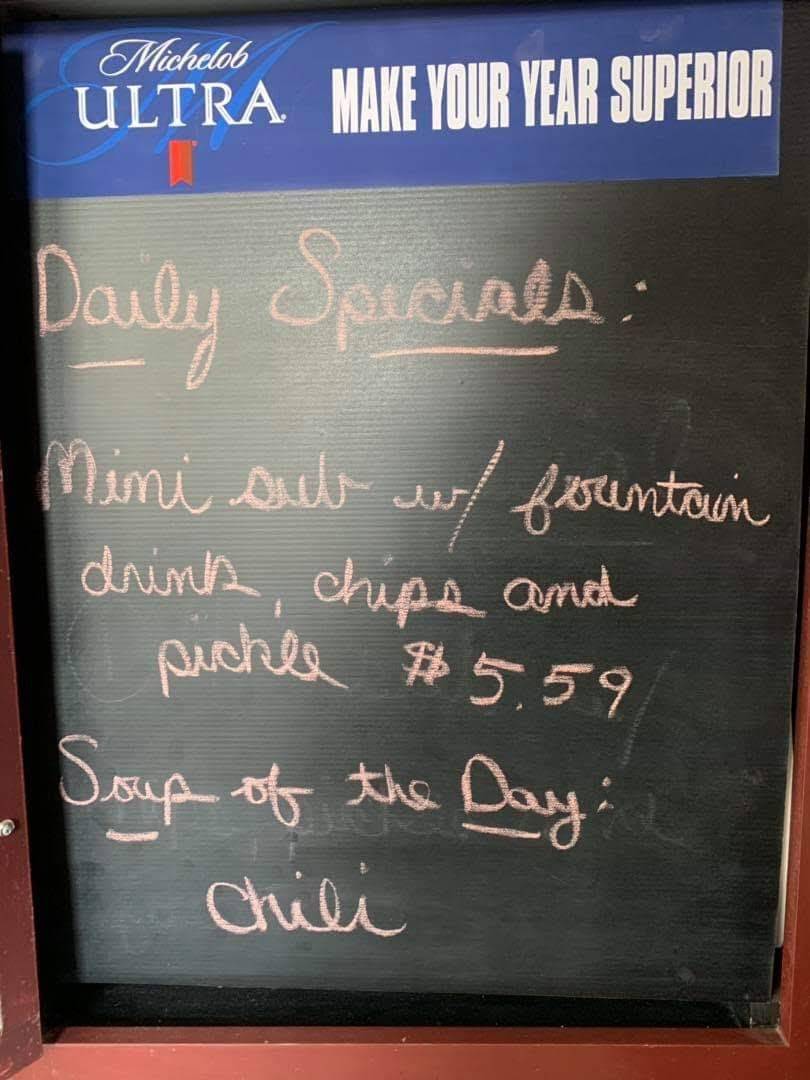 Michelob
ULTRA
MAKE YOUR YEAR SUPERIOR
Daily Specials:
Mini sub w/ fountain
drink, chips and
pickle $5.59
Soup of the Day:
Chili